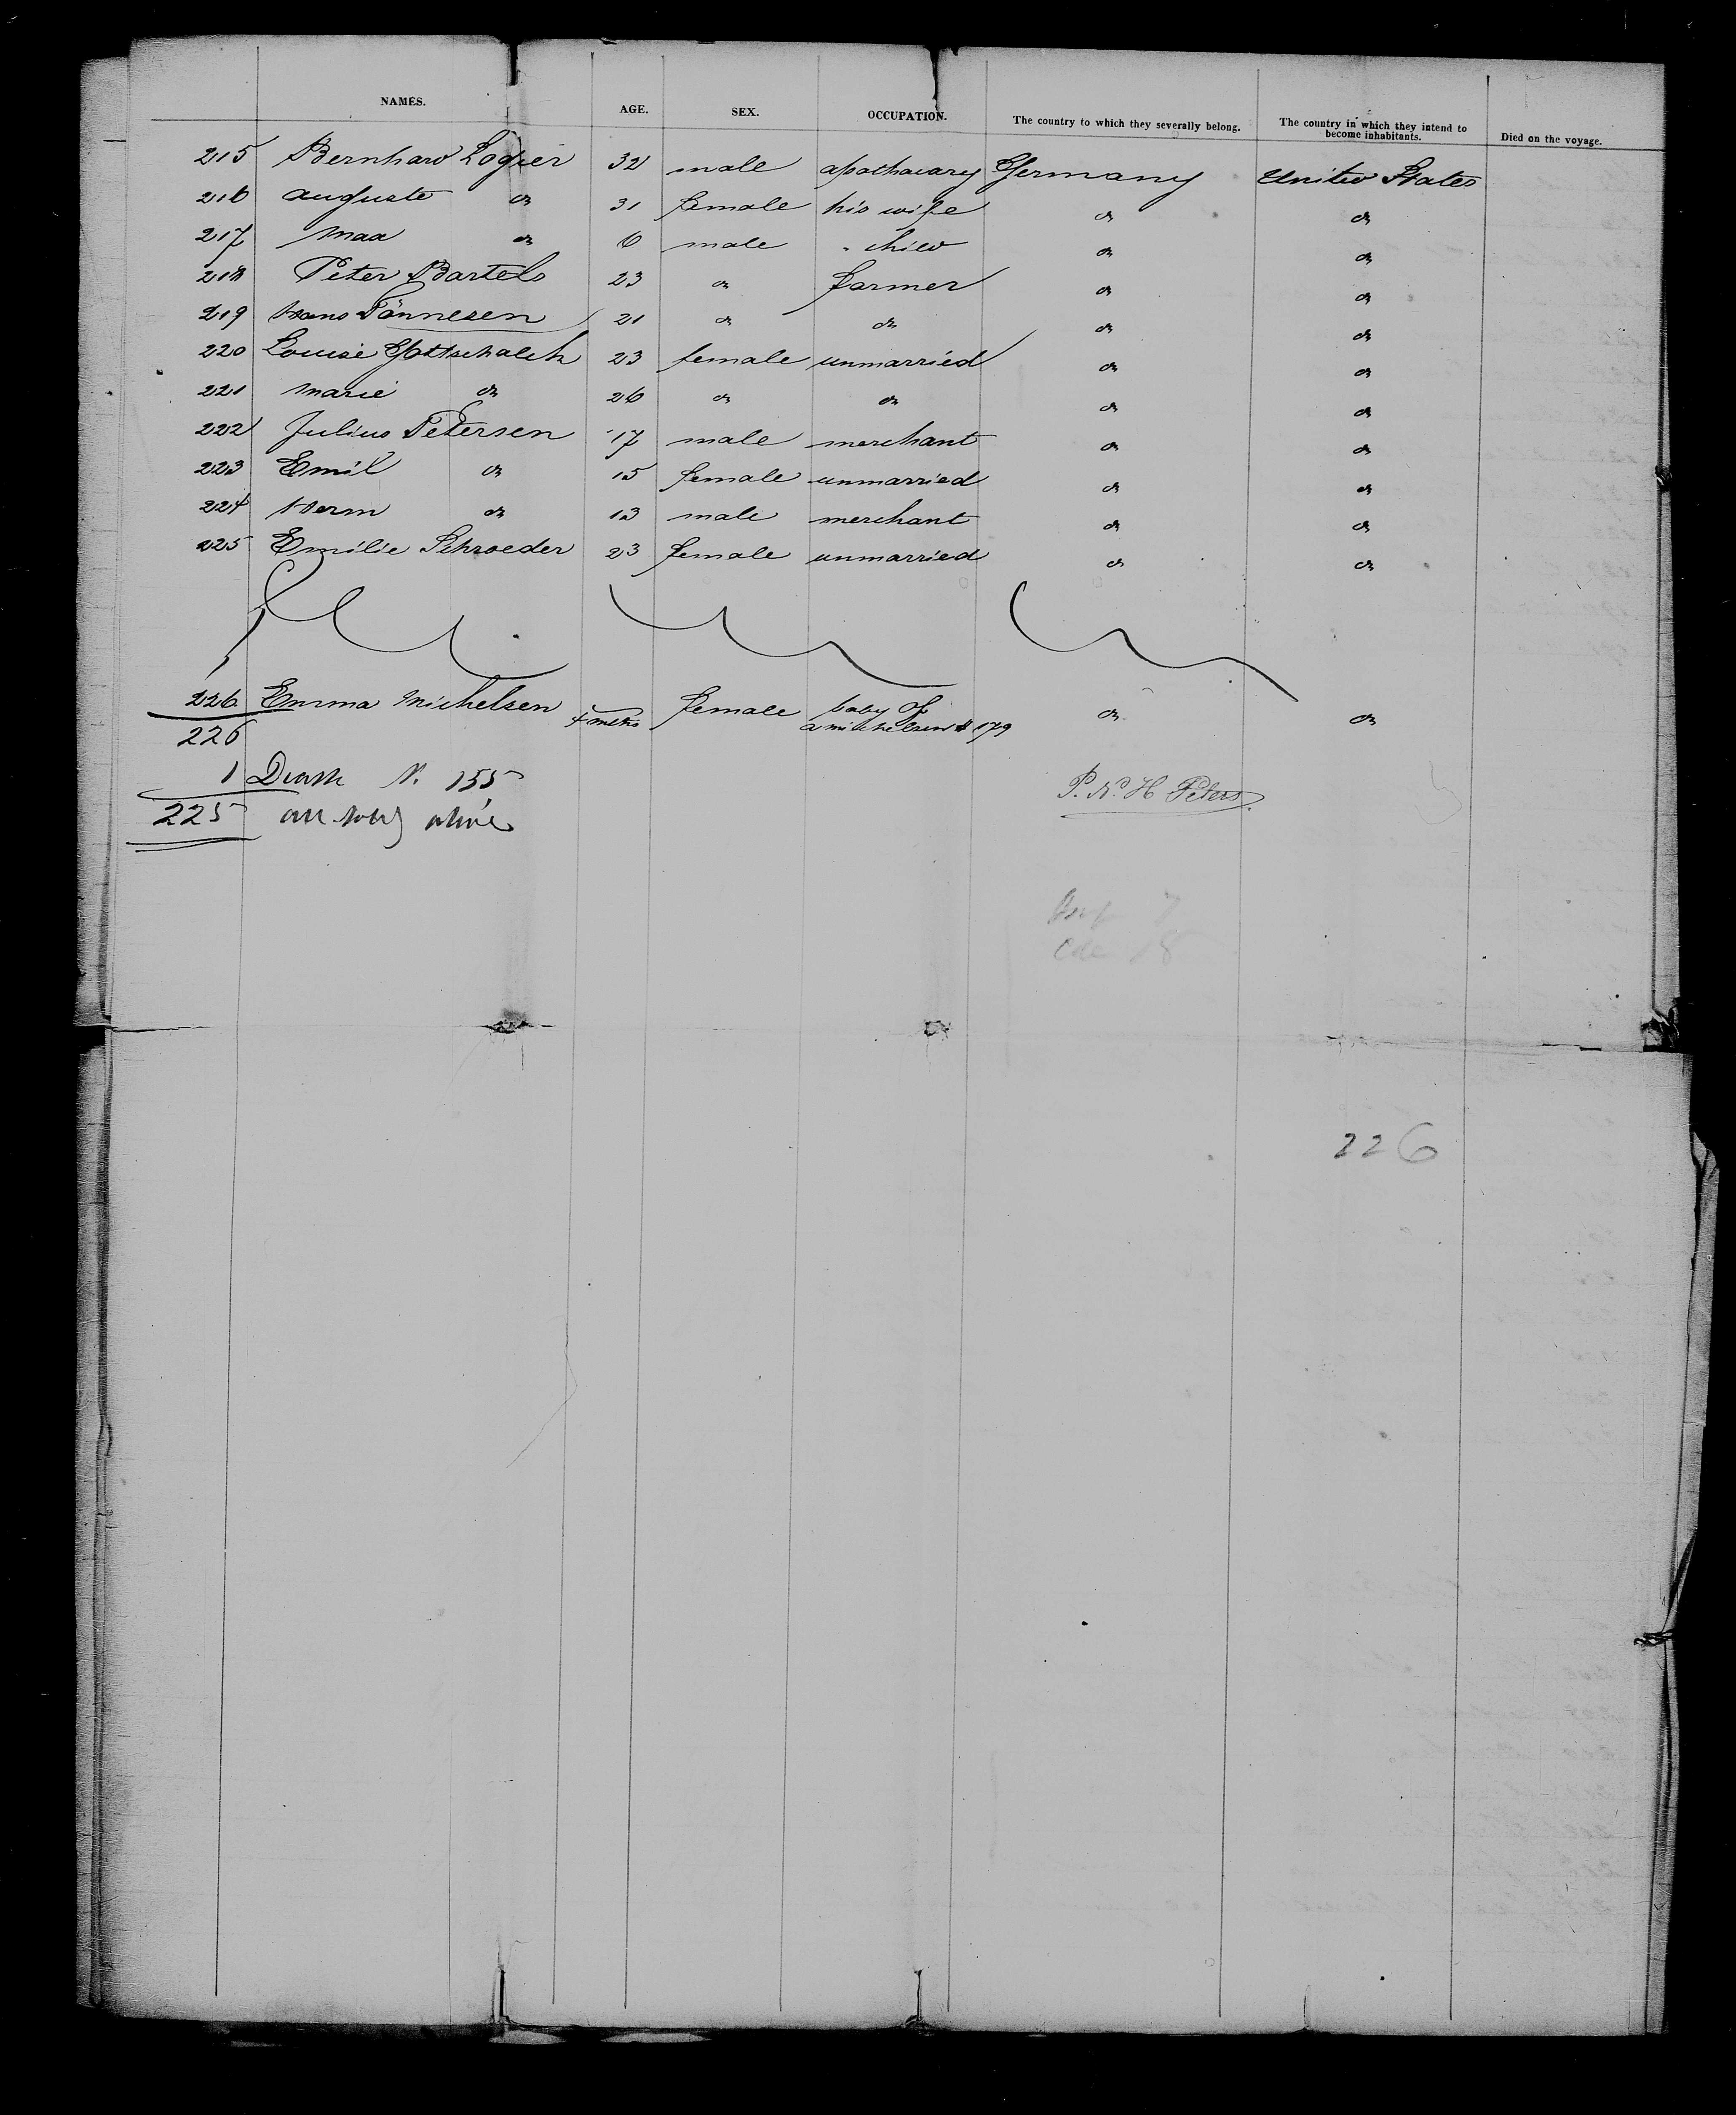 NAMES. AGE. SEX. OCCUPATION. The country to which they severally belong. The country in which they intend to become inhabitants. Died on the voyage.
215 Bernhard Logier 32 male apothacary Germany United States
216 Auguste do 31 female his wife do do
217 Max do 6 male child do do
218 Peter Bartels 23 do farmer do do
219 Hans Tönnesen 21 do do do do
220 Louise Gottschalck 23 female unmarried do do
221 Marie do 26 do do do do
222 Julius Petersen 17 male merchant do do
223 Emil do 15 female unmarried do do
224 Herm do 13 male merchant do do
225 Emilie Schroeder 23 female unmarried do do
226 Emma Michelsen 4 mths female baby of do do
a michelsen # 179
226
1 Death N. 155
P. N. H Peters.
225 alive
226